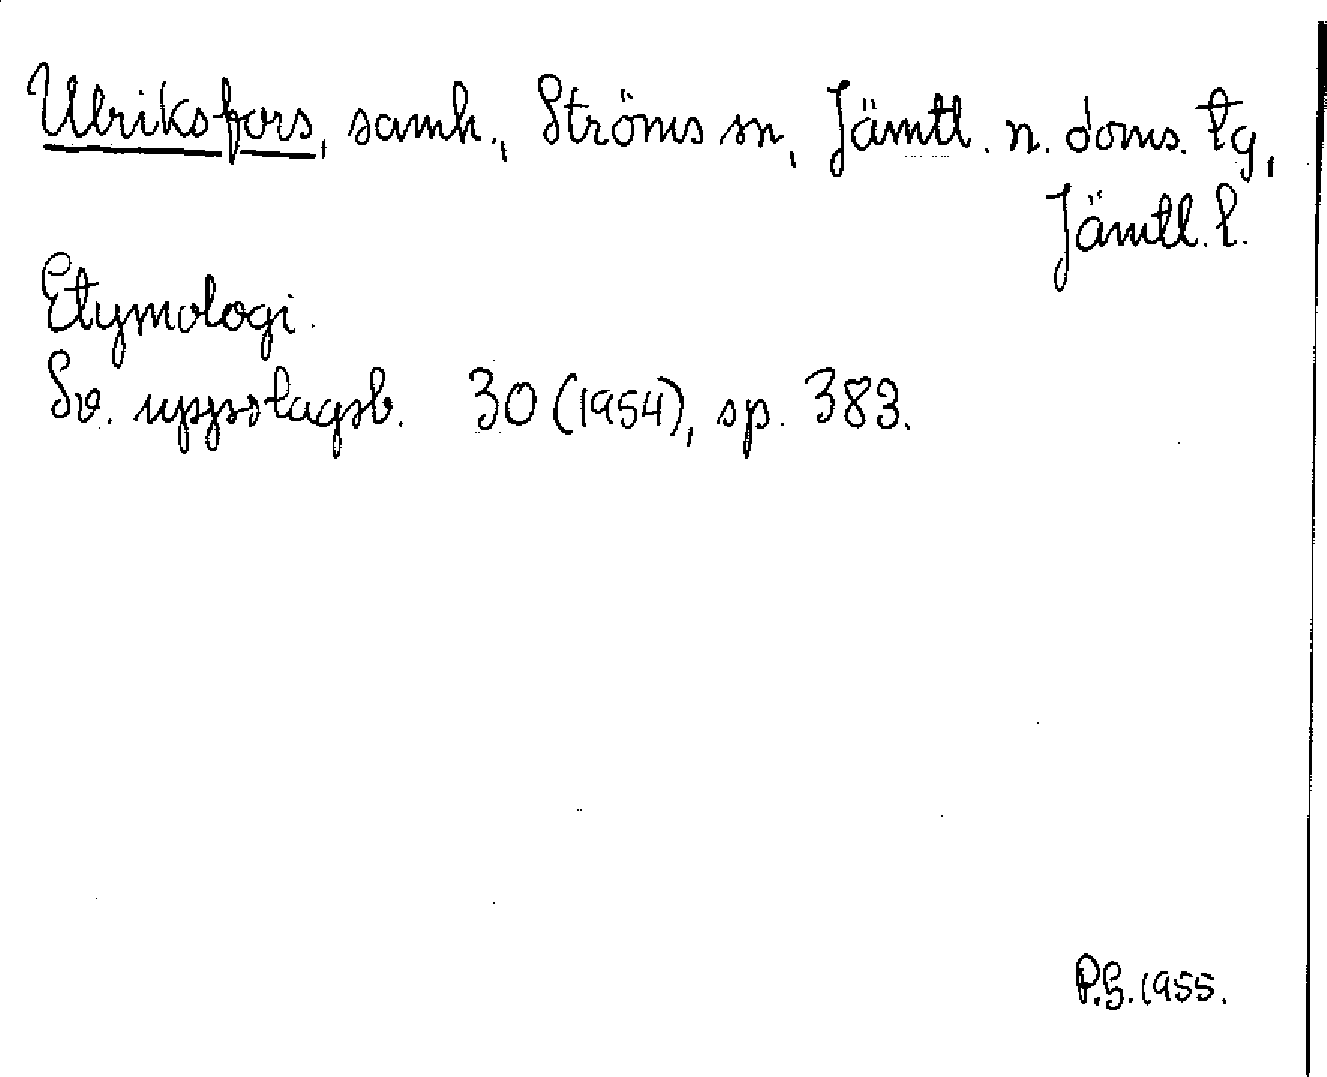 Ulriksfors, samh., Ströms sn, Jämtl. n. doms. tg,
Jämtl. l.
Etymologi.
Sv. uppslagsb. 30 (1954), sp. 383.
P.G. 1955.